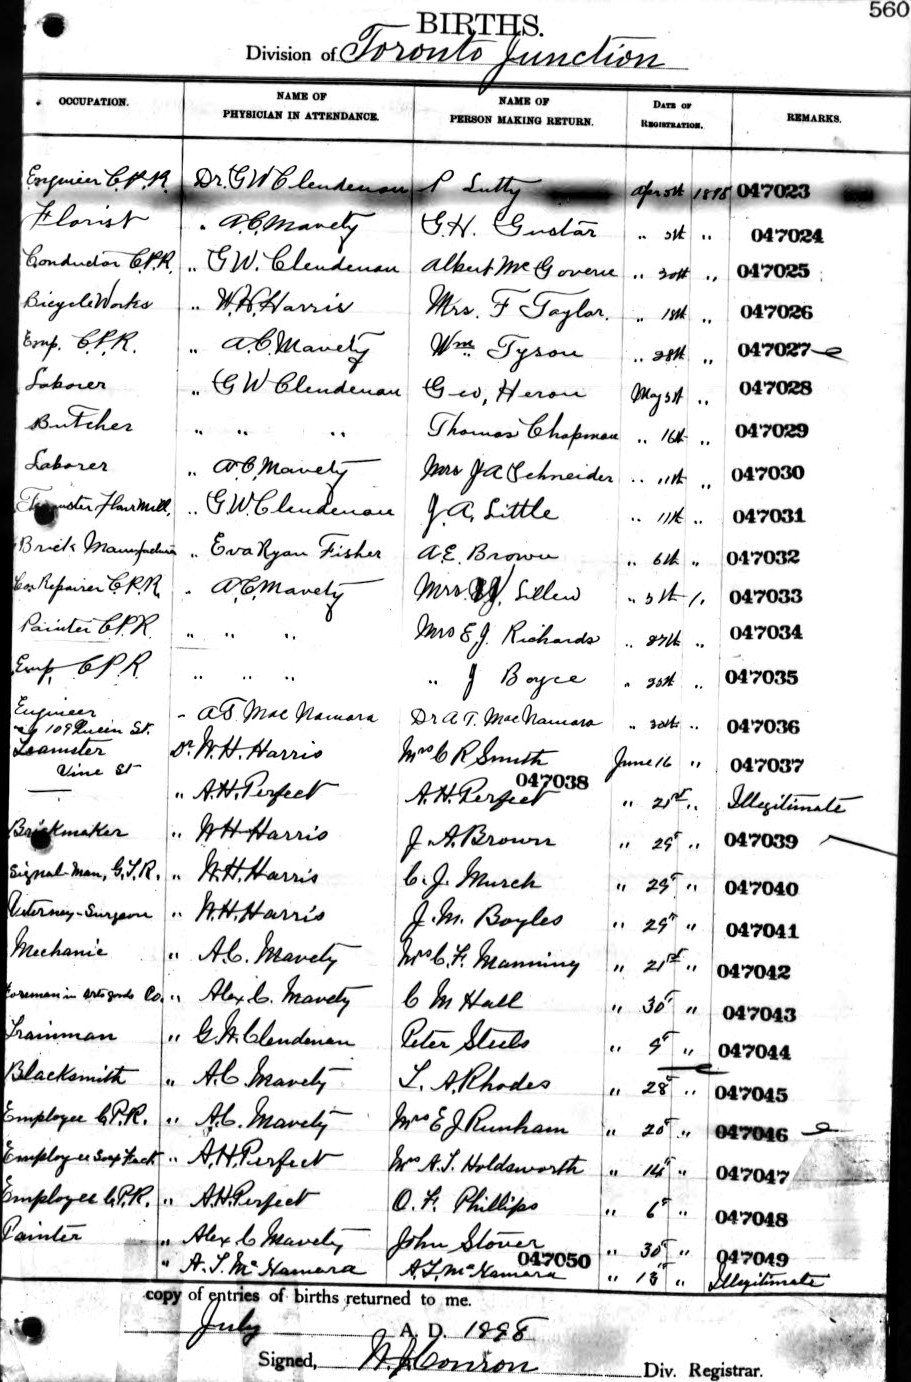 560
BIRTHS.
Division of Toronto Junction
OCCUPATION. NAME OF PHYSICIAN IN ATTENDANCE. NAME OF PERSON MAKING RETURN. DATE OF REGISTRATION. REMARKS.
Engineer C.P.R. Dr. G W Clendenan P Lutty Apr 5th 1898 047023
Florist " A.C. Mavety G.H. Gustar " " 047024
Conductor C.P.R. " G W. Clendenan Albert Mc Govern " 30th " 047025
Bicycle Works " W.H. Harris Mrs. F Taylor. " 18th " 047026
Emp. C.P.R. " A.C. Mavety Wm Tyson " 28th " 047027
Laborer " G W Clendenan Geo, Heron May " 047028
Butcher " " " Thomas Chapman " 16th " 047029
Laborer " A.C. Mavety Mrs J A Schneider " 11th " 047030
Flour Mill. " G.W. Clendenan J.A. Little " 11th " 047031
Brick Manufacturer " Eva Ryan Fisher A.E. Brown " 6th " 047032
Car Repairer C.P.R. " A.C. Mavety Mrs. W. " " 047033
Painter C.P.R. " " " Mrs E J. Richards " 27th " 047034
Emp. C P R " " " " J Boyce " " 047035
Engineer " A T. Mac Namara Dr A T. Mac Namara " " 047036
109 Queen St.
Teamster Dr. W.H. Harris Mrs C R Smith June 16 " 047037
Vine St
— " A.H. Perfect A.H. Perfect 047038 " 21st " Illegitimate
Brickmaker " W H Harris J. A. Brown " 29t " 047039
Signal-Man, G.T.R. " W.H. Harris C. J. Murch " 29t " 047040
Veterney-Surgeon " W.H. Harris J. M. Boyles " 29t " 047041
Mechanic " A.C. Mavety Mrs C. F. Manning " 21st " 047042
Foreman in Co. " Alex C. Mavety C M Hall " 30t " 047043
Trainman " G.W. Clendenan Peter Steels " 9t " 047044
Blacksmith " A.C Mavety L. A. Rhodes " 28t " 047045
Employee C.P.R. " A.C. Mavety Mrs E J Runham " 20t " 047046
Employee " A.H. Perfect Mrs A.T. Holdsworth " 14t " 047047
Employee C.P.R. " A.H. Perfect O. F. Phillips " 6t " 047048
Painter " Alex C Mavety John Stover " 30t " 047049
" A.T. McNamara A.T. McNamara 047050 " 13t " Illegitimate
copy of entries of births returned to me.
July A. D. 1898
Signed, W. J. Conron Div. Registrar.